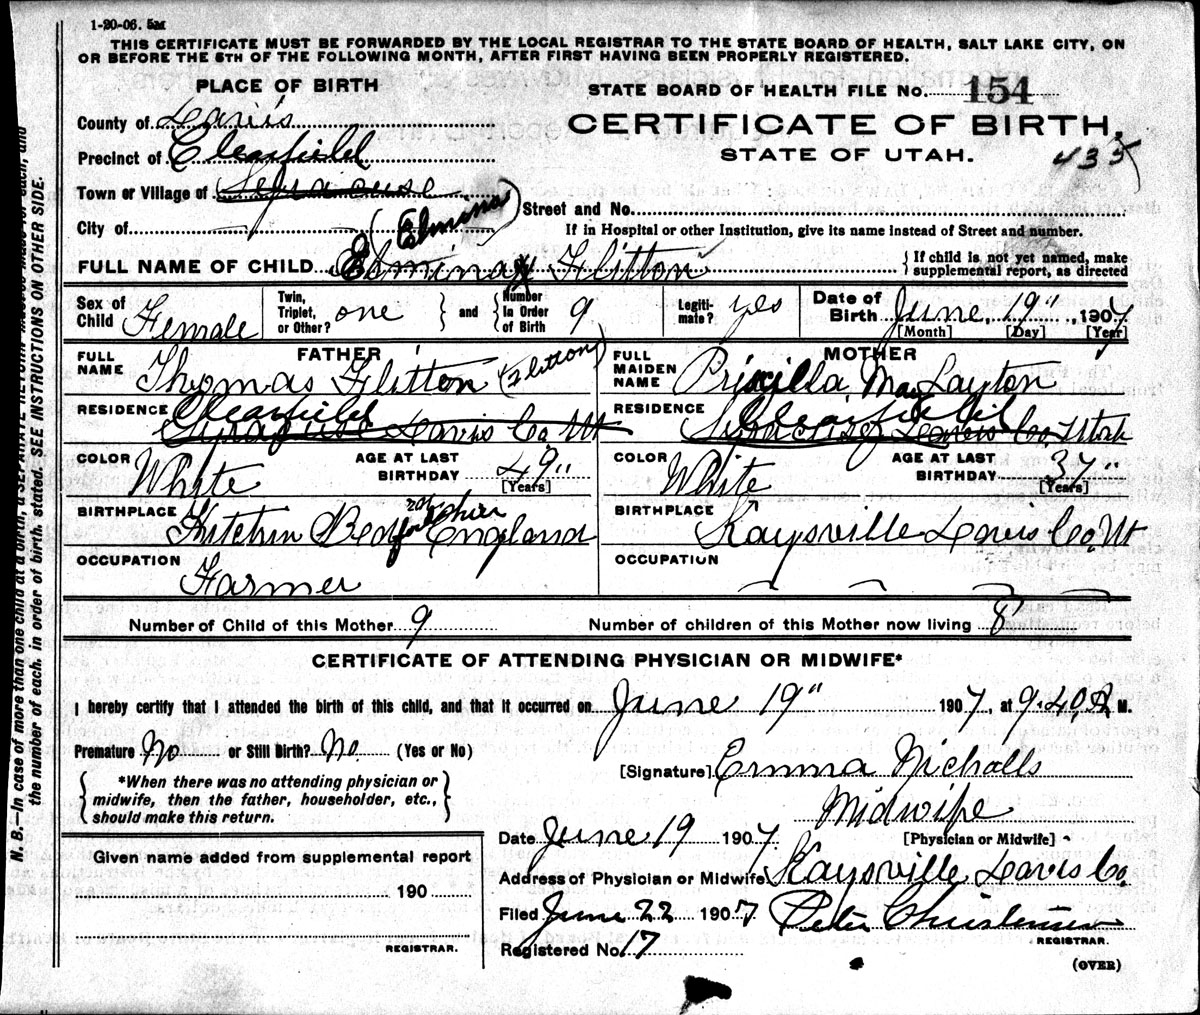 1-20-06. 5M
THIS CERTIFICATE MUST BE FORWARDED BY THE LOCAL REGISTRAR TO THE STATE BOARD OF HEALTH, SALT LAKE CITY, ON
OR BEFORE THE 5TH OF THE FOLLOWING MONTH, AFTER FIRST HAVING BEEN PROPERLY REGISTERED.
PLACE OF BIRTH
STATE BOARD OF HEALTH FILE No. 154
County of Davis
CERTIFICATE OF BIRTH,
Precinct of Clearfield
STATE OF UTAH. 435
Town or Village of Syracuse
City of
(Elmina)
Street and No.
If in Hospital or other Institution, give its name instead of Street and number.
FULL NAME OF CHILD Elmina Flitton
{ If child is not yet named, make supplemental report, as directed
Sex of Child Female
Twin, Triplet, or Other? one } and { Number in Order of Birth 9
Legiti-mate? yes
Date of Birth June 19" 1907
[Month] [Day] [Year]
FATHER
FULL NAME Thomas Flitton (Flitton)
MOTHER
FULL MAIDEN NAME Priscilla May Layton
RESIDENCE Clearfield
Syracuse Davis Co. Ut
RESIDENCE Clearfield
Syracuse Davis Co. Utah
COLOR White
AGE AT LAST BIRTHDAY 49" [Years]
COLOR White
AGE AT LAST BIRTHDAY 37" [Years]
BIRTHPLACE Hitchin Bedfordshire England
BIRTHPLACE Kaysville Davis Co. Ut
OCCUPATION Farmer
OCCUPATION
Number of Child of this Mother 9
Number of children of this Mother now living 8
CERTIFICATE OF ATTENDING PHYSICIAN OR MIDWIFE*
I hereby certify that I attended the birth of this child, and that it occurred on June 19" 1907, at 9.40, A M.
Premature No or Still Birth? No (Yes or No)
{ *When there was no attending physician or midwife, then the father, householder, etc., should make this return. }
[Signature] Emma Nicholls
Midwife
[Physician or Midwife]
Date June 19 1907
Address of Physician or Midwife Kaysville Davis Co.
Filed June 22 1907 Peter Christensen
REGISTRAR.
Registered No. 17
(OVER)
Given name added from supplemental report
190
REGISTRAR.
N. B.—In case of more than one child at a birth, a SEPARATE RETURN must be made for each, and
the number of each, in order of birth, stated. SEE INSTRUCTIONS ON OTHER SIDE.